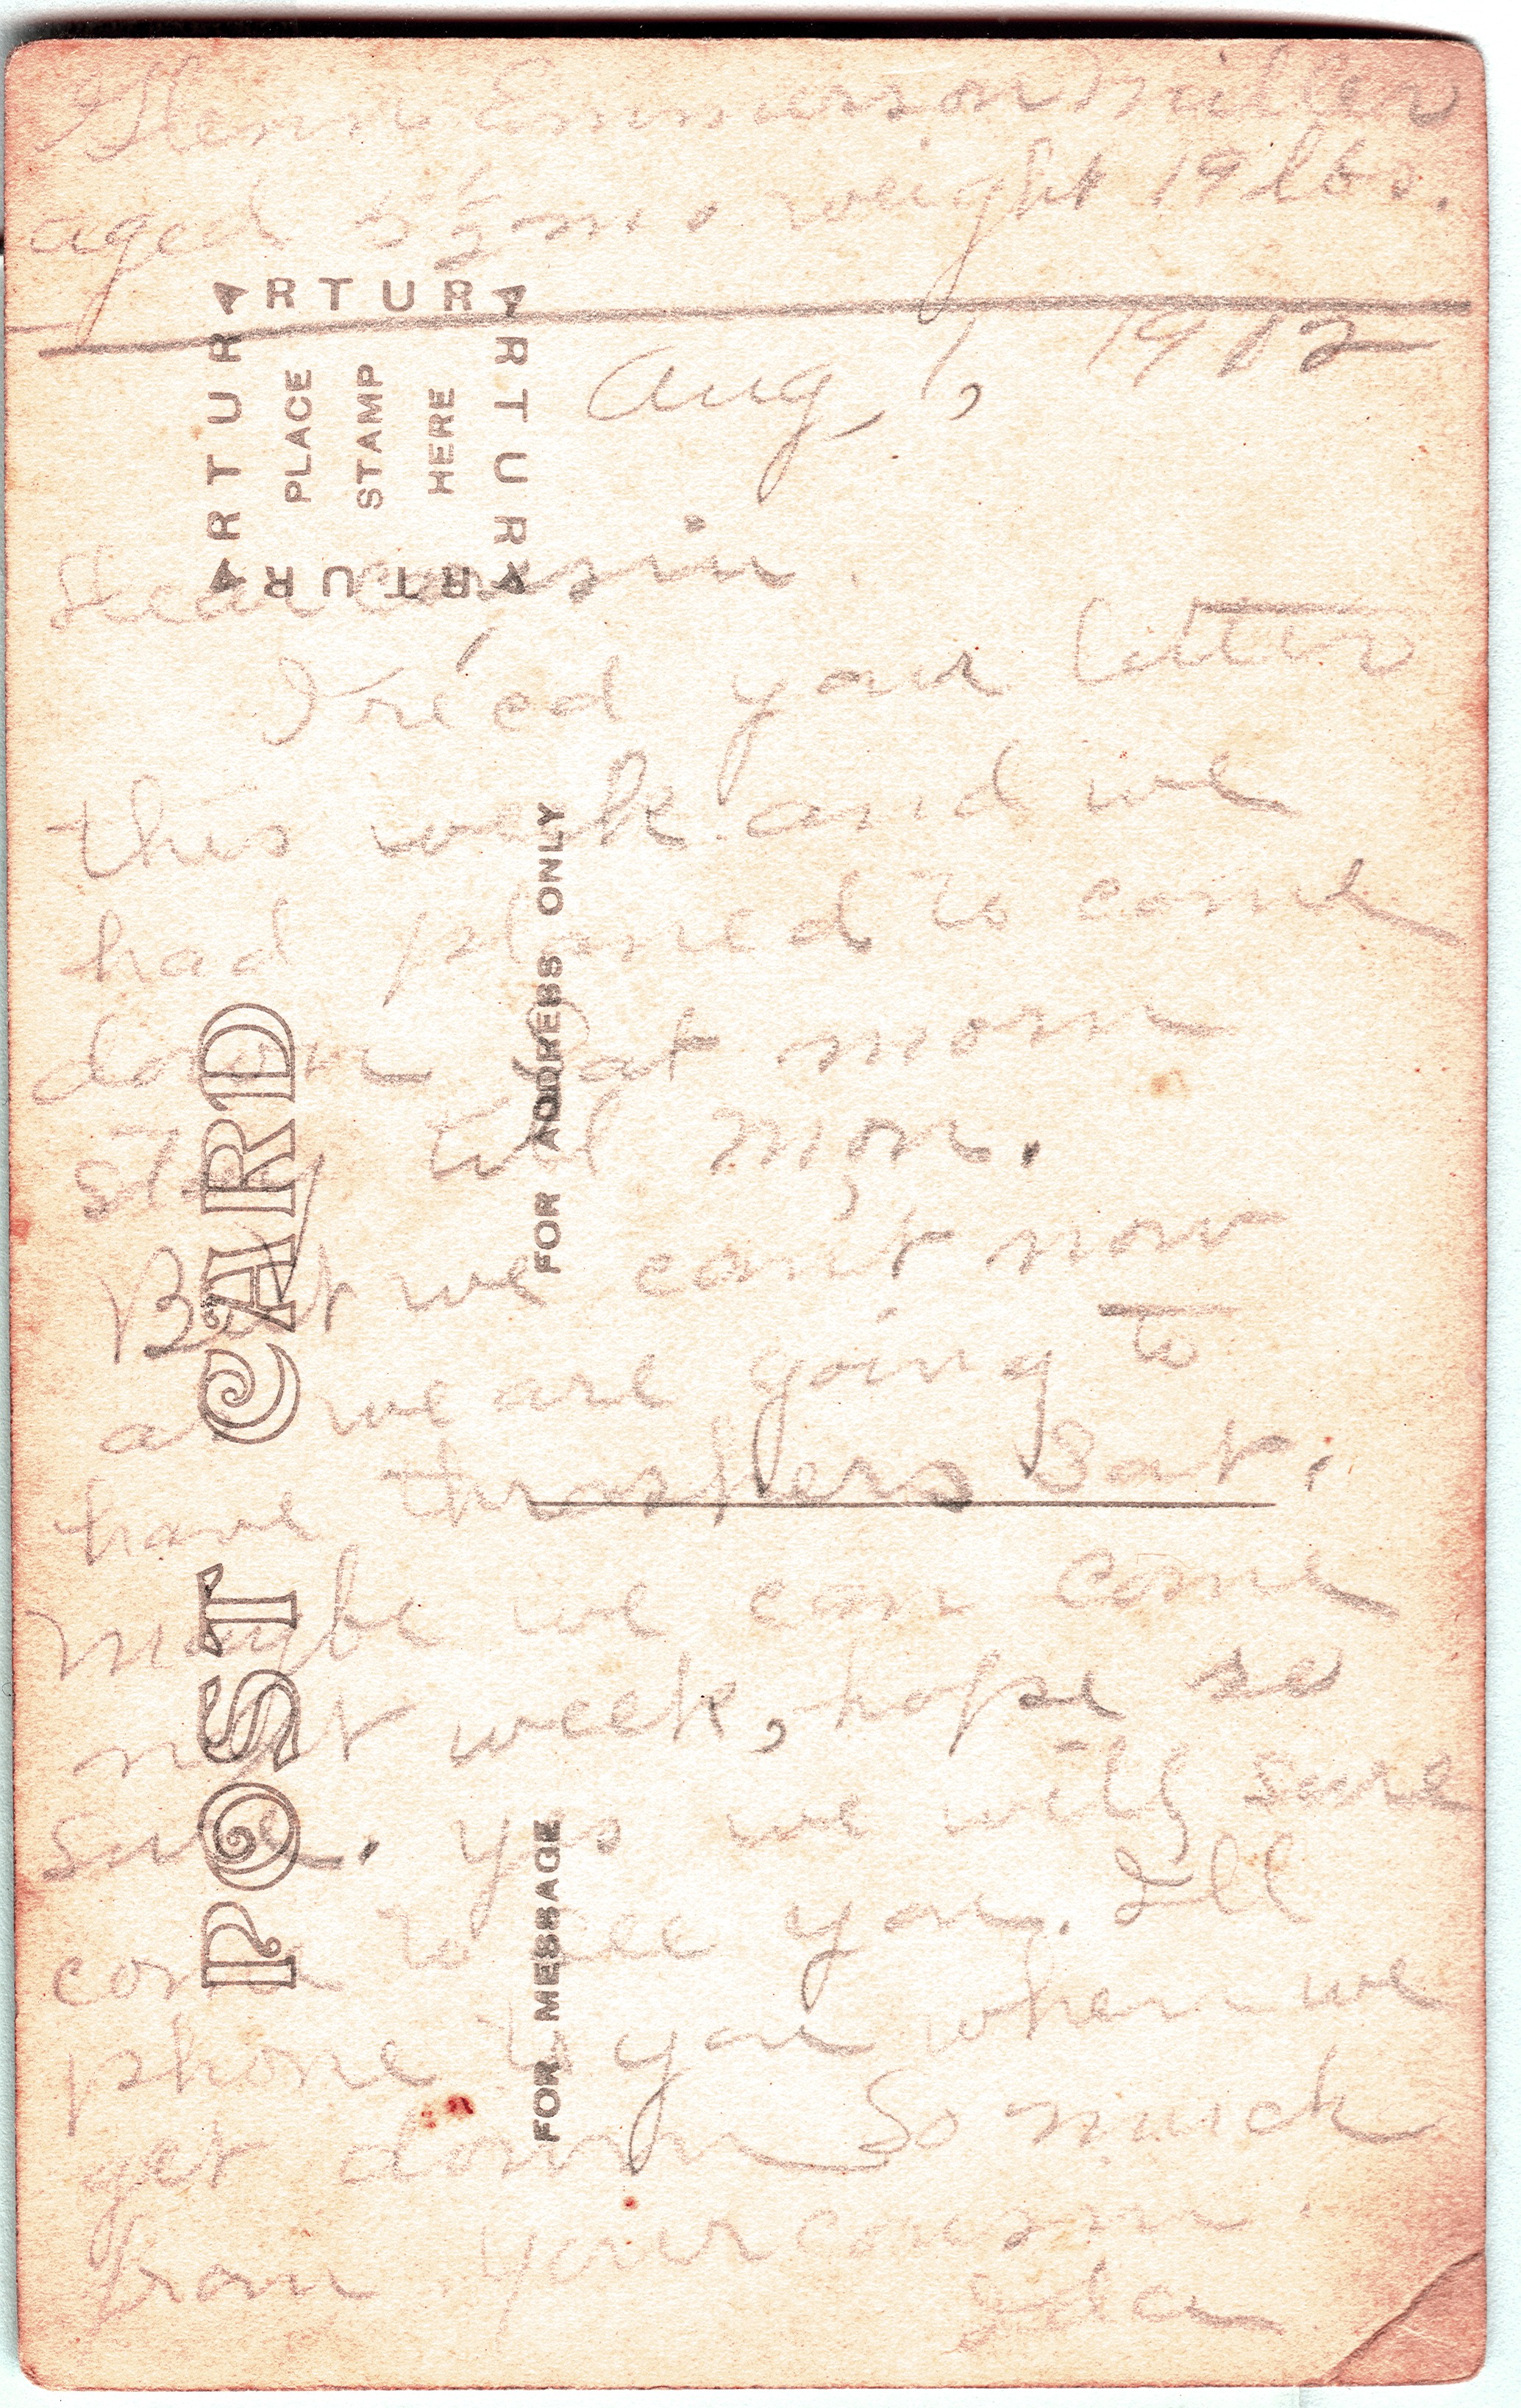 Glenn Emmerson Miller
aged 5½ mo. weight 19 lbs.
Aug, 1, 1912
Dear cousin.
I rec'ed your letter
this week and we
had planed to come
down Sat morn
stay till mon.
But we can't now
as we are going to
have thrashers Sat.
Maybe we can come
next week, hope so
sure. yes we will sure
come to see you. Ill
phone to you when we
get down So much
from your cousin.
Ida
ARTURA
ARTURA
ARTURA
ARTURA
PLACE
STAMP
HERE
POST CARD
FOR ADDRESS ONLY
FOR MESSAGE